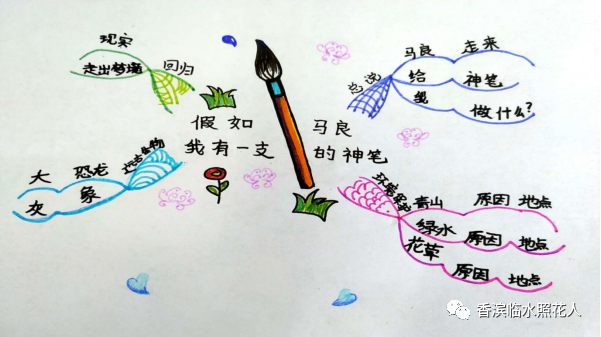 假如 马良
我有一支 的神笔
总说
马良 走来
给 神笔
我 做什么?
环境保护
青山 原因 地点
绿水 原因 地点
花草 原因 地点
远古生物
大 恐龙
灰 象
回归
现实
走出梦境
香滨临水照花人